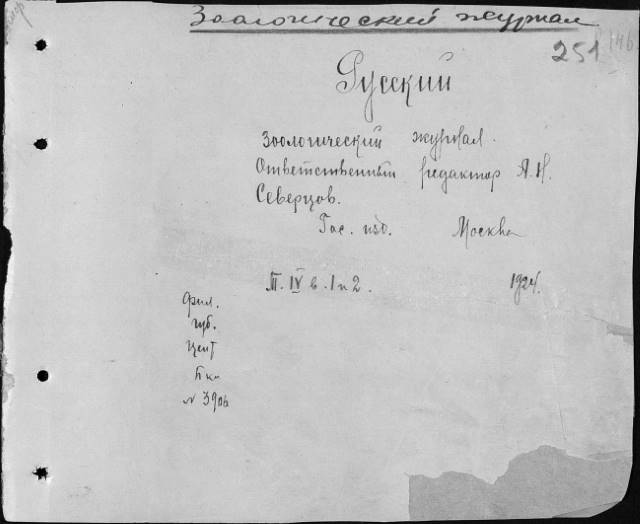 Зоологический журнал
251 146
Русский
зоологический журнал.
Ответственный редактор А.Н.
Северцов.
Гос. изд. Москва
Т. IV в. 1 и 2. 1924.
Фил.
губ.
Цент
Бки
№